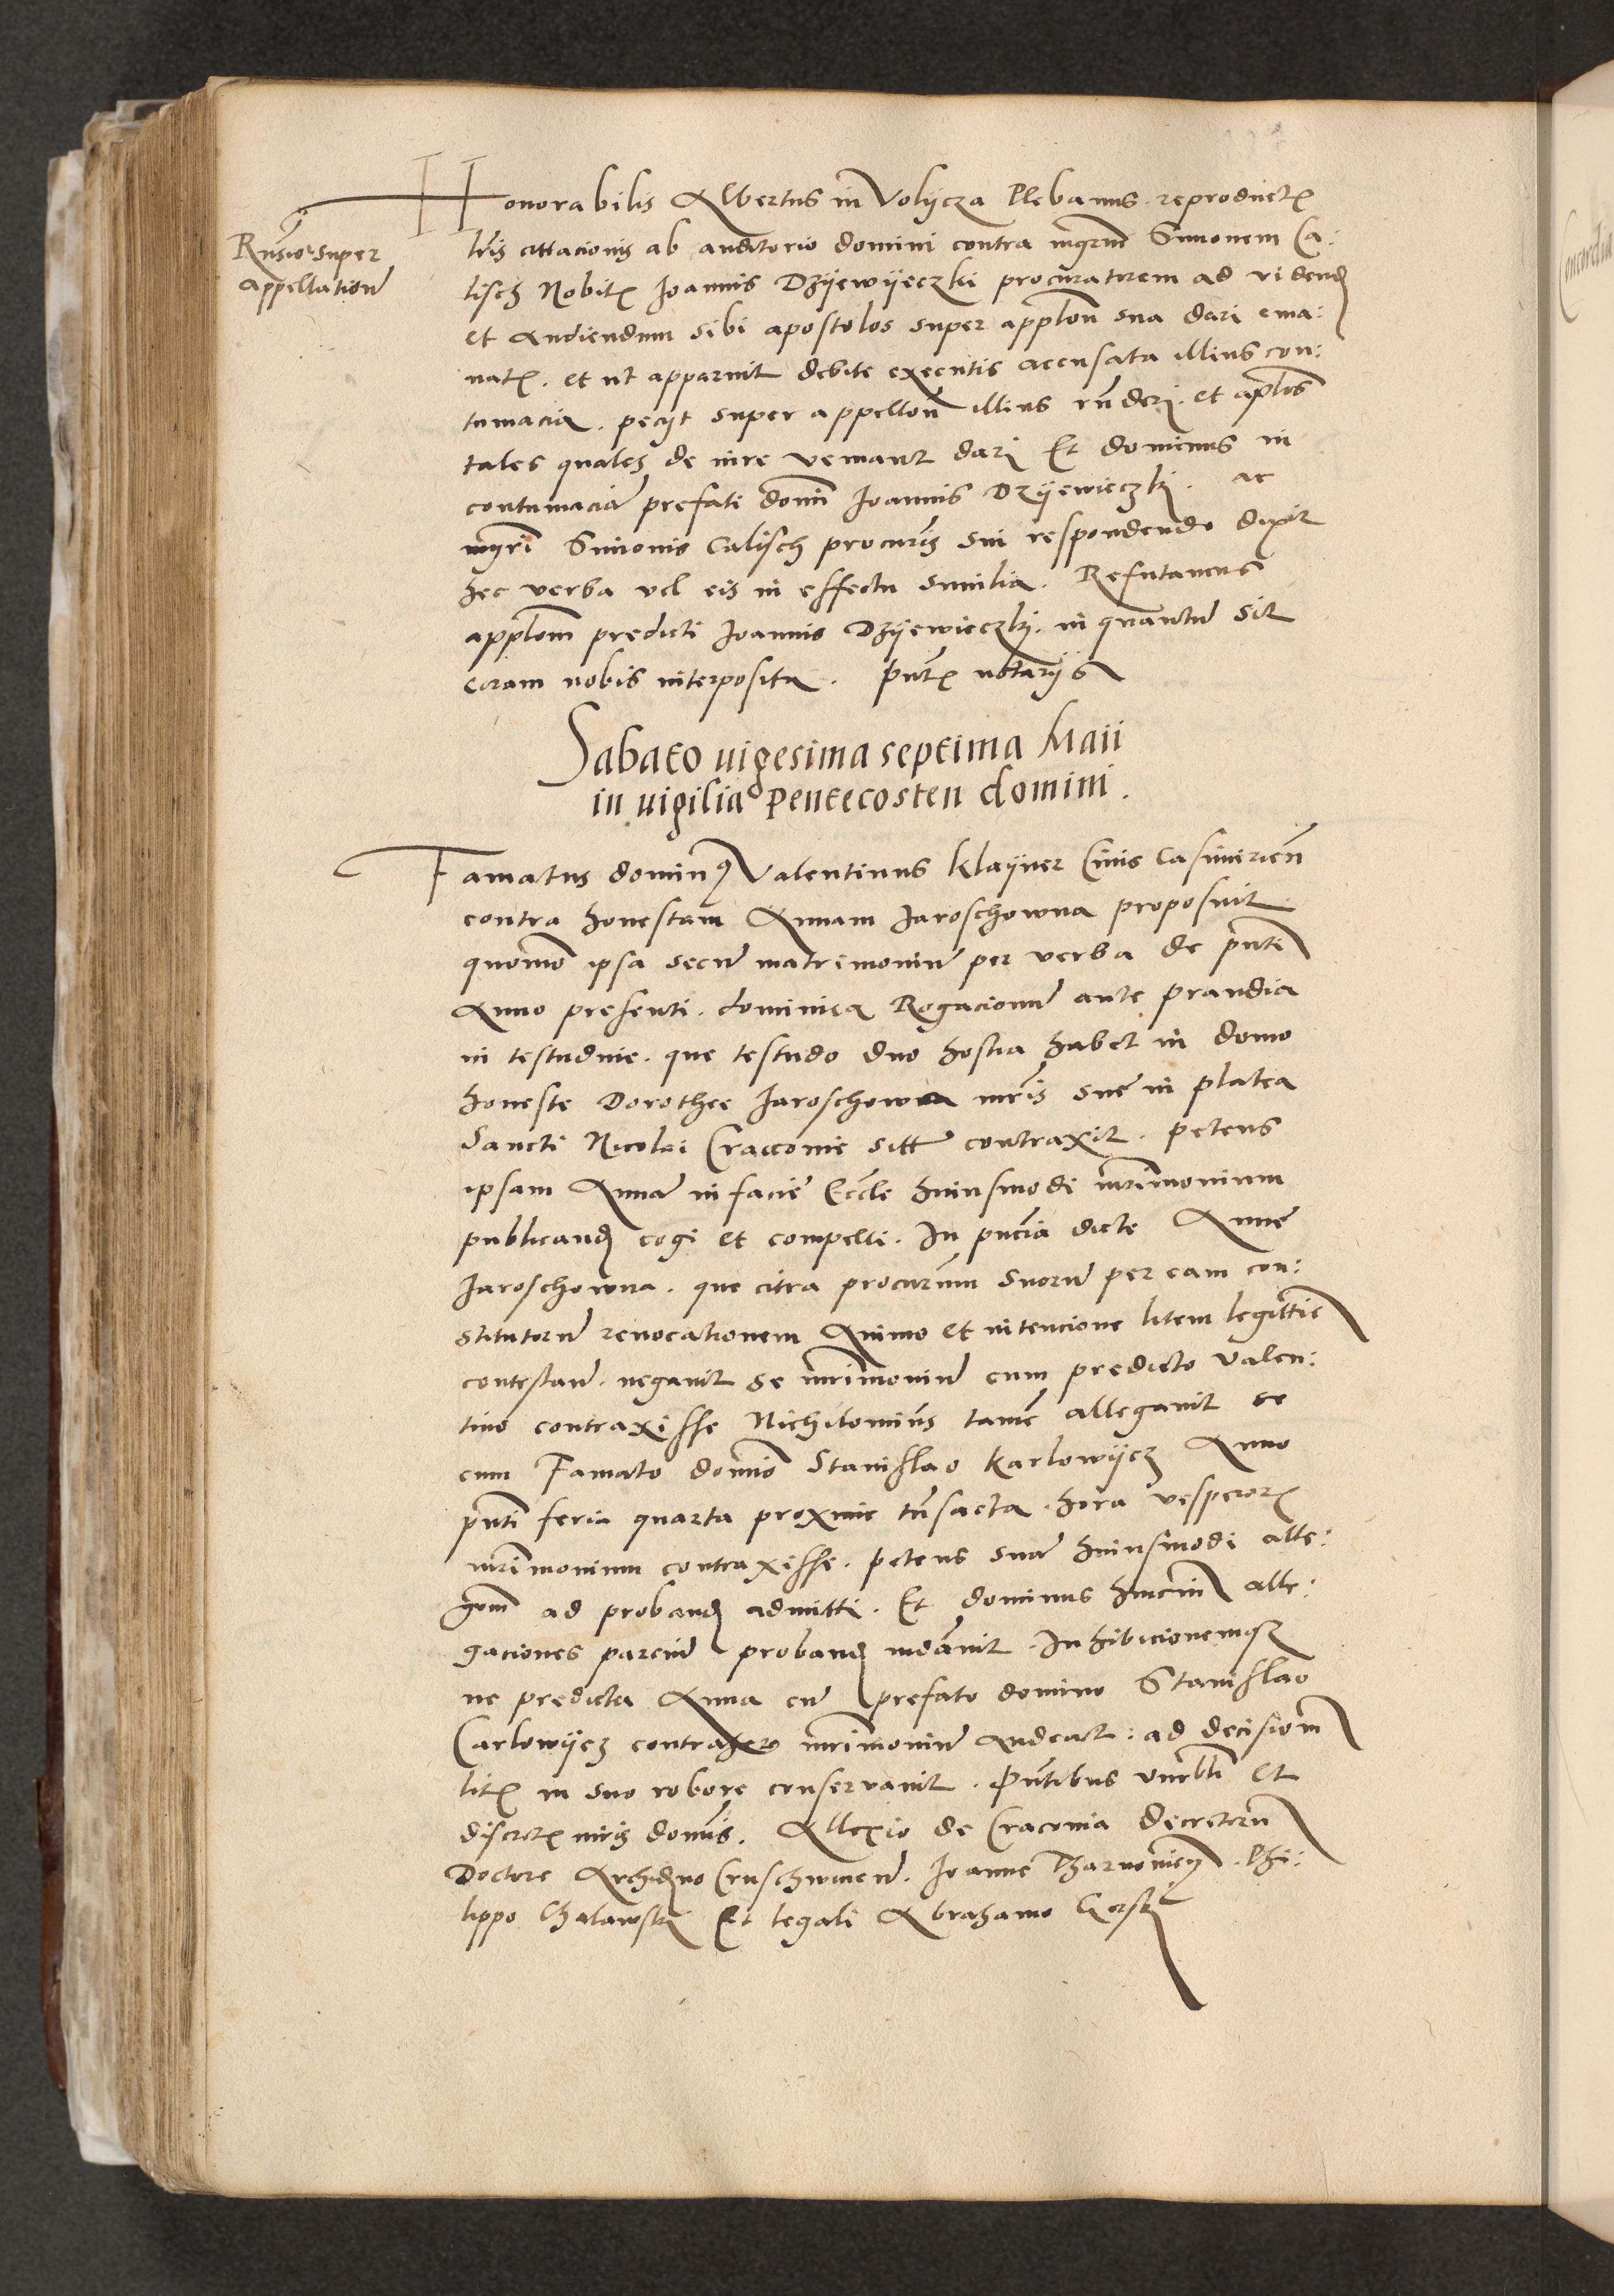 Honorabilis Albertus in Volijcza Plebanus reproductis
Rnsio super
appellation
lris citacionis ab auditorio domini contra mgrm Simonem Ca:
lisch Nobilis Joannis Dzijewijeczki procuratorem ad videnд
et Audiendum sibi apostolos super applon sua dari ema:
natis. et ut apparuit debite executis accusata illius con:
tumacia. peciit super appellon illius rnderi. et aplos
tales quales de iure veniant dari Et dominus in
contumaciam prefati domi Joannis Dzijewieczki. ac
mgri Simonis Calisch procuris sui respondendo dixit
hec verba vel eis in effectu similia. Refutamus
applom predicti Joannis Dzijewieczki. in quantum sit
coram nobis interposita. Pntis notarijs
Sabato vigesima septima Maii
in vigilia Pentecosten domini.
Famatus dominus Valentinus Klaijner Civis Casimirien
contra honestam Annam Jaroschowna proposuit
quomo ipsa secum matrimonium per verba de pnti
Anno presenti. dominica Rogacionum ante prandia
in testudine. que testudo duo hostia habet in domo
honeste Dorothee Jaroschowa mris sue in platea
Sancti Nicolai Cracovie sitt contraxit. petens
ipsam Annam in facie Eccle huiusmodi mrimonium
publicand cogi et compelli. In pncia dicte Anne
Jaroschowna. que citra procurum suorum per eam con:
stitutorum revocationem Animo et intencione litem legittime
contestan. negavit se mrimonium cum predicto Valen:
tino contraxisse Nichilominus tamen allegavit se
cum Famato domino Stanislao Karlowijcz Anno
pnti feria quarta proxime tnsacta. hora vesperorum
mrimonium contraxisse. petens suam huiusmodi alle:
gom ad proband admitti. Et dominus hincinde alle:
gaciones parcium proband mdavit. Inhibicionemque
ne predicta Anna cum prefato domino Stanislao
Carlowijcz contrahere mrimonium audeat: ad decisiom
litis in suo robore conservavit. Pntibus vnrbli et
discretis viris domis. Allexio de Cracovia Decretorum
Doctore Archidno Cruschwicen. Joanne Tharnowiecz. Phi:
lippo Chalawski Et legali Abrahamo Gorski